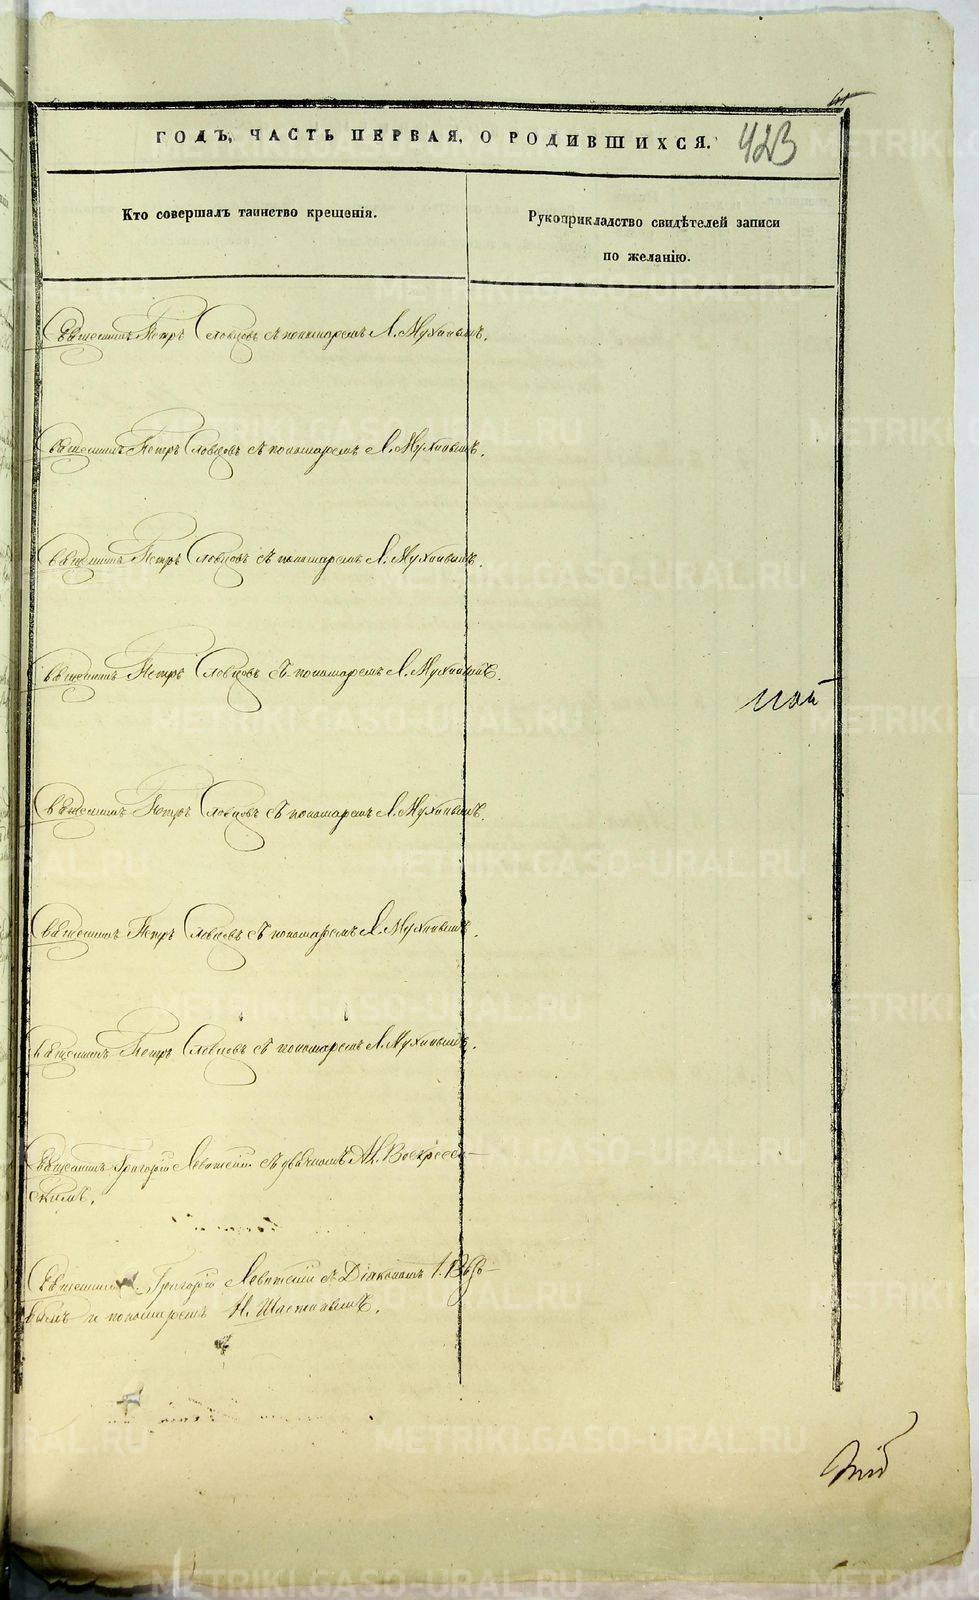 ГОДЪ, ЧАСТЬ ПЕРВАЯ, О РОДИВШИХСЯ. 423
Кто совершалъ таинство крещенія.
Рукоприкладство свидѣтелей записи
по желанію.
Священникъ Петръ Словцовъ съ пономаремъ Л. Мухинымъ.
Священникъ Петръ Словцовъ съ пономаремъ Л. Мухинымъ.
Священникъ Петръ Словцовъ съ пономаремъ Л. Мухинымъ.
Священникъ Петръ Словцовъ съ пономаремъ Л. Мухинымъ.
Священникъ Петръ Словцовъ съ пономаремъ Л. Мухинымъ.
Священникъ Петръ Словцовъ съ пономаремъ Л. Мухинымъ.
Священникъ Петръ Словцовъ съ пономаремъ Л. Мухинымъ.
Священникъ Григорій Левитскій съ дьячкомъ Ал. Воскресен-
скимъ.
Священникъ Григорій Левитскій съ Діакономъ І.
и пономаремъ Н.
METRIKI.GASO-URAL.RU